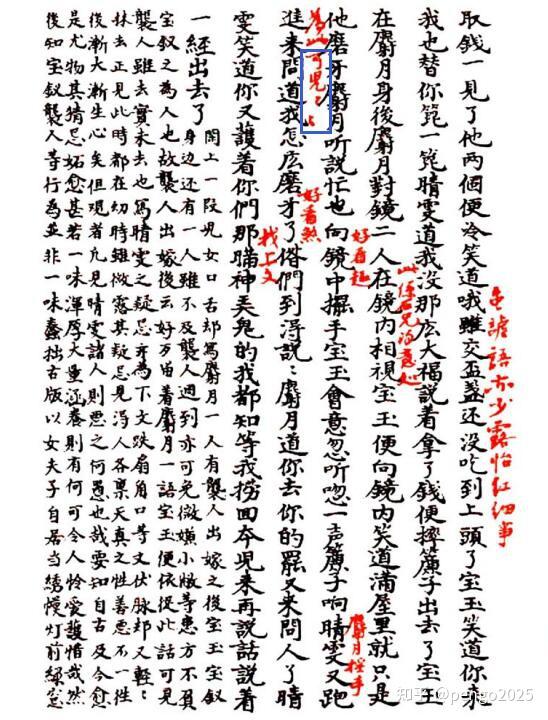 虽謔語亦少露怡紅細事
取錢一見了他两個便冷笑道哦雖交盃盞还没吃到上頭了宝玉笑道你来
我也替你篦一篦晴雯道我没那庅大福説着拿了錢便摔簾子出去了宝玉
此係石兄得意处
在麝月身後麝月對鏡二人在鏡内相視宝玉便向鏡内笑道滿屋里就只是
好看趣
麝月摇手
他磨牙麝月听説忙也向鏡中擺手宝玉會意忽听唿一声簾子响晴雯又跑
可見:上
好看煞
進来問道我怎庅磨牙了偺們到淂説:麝月道你去你的罷又来問人了晴
找上文
雯笑道你又護着你們那瞞神弄鬼的我都知等我捞回本兒来再説話説着
一經出去了
閑上一段兒女口舌却寫麝月一人有襲人出嫁之後宝玉宝釵
身边还有一人雖不及襲人週到亦可免微嫌小敝等患方不負
宝釵之為人也故襲人出嫁後云好歹留着麝月一語宝玉便依從此話可見
襲人雖去實未去也寫晴雯之疑忌亦為下文跌扇角口等文伏脉却又輕:
林去正見此時都在幼時雖微露其疑忌見淂人各稟天真之性善惡不一徃
後漸大漸生心矣但观者凢見晴雯諸人則惡之何愚也哉要知自古及今愈
是尤物其猜忌妬愈甚若一味渾厚大量涵養則有何可令人怜愛護惜哉然
後知宝釵襲人等行為並非一味蠢拙古版以女夫子自居当綉幙灯前緑窓
知乎 @pengo2025